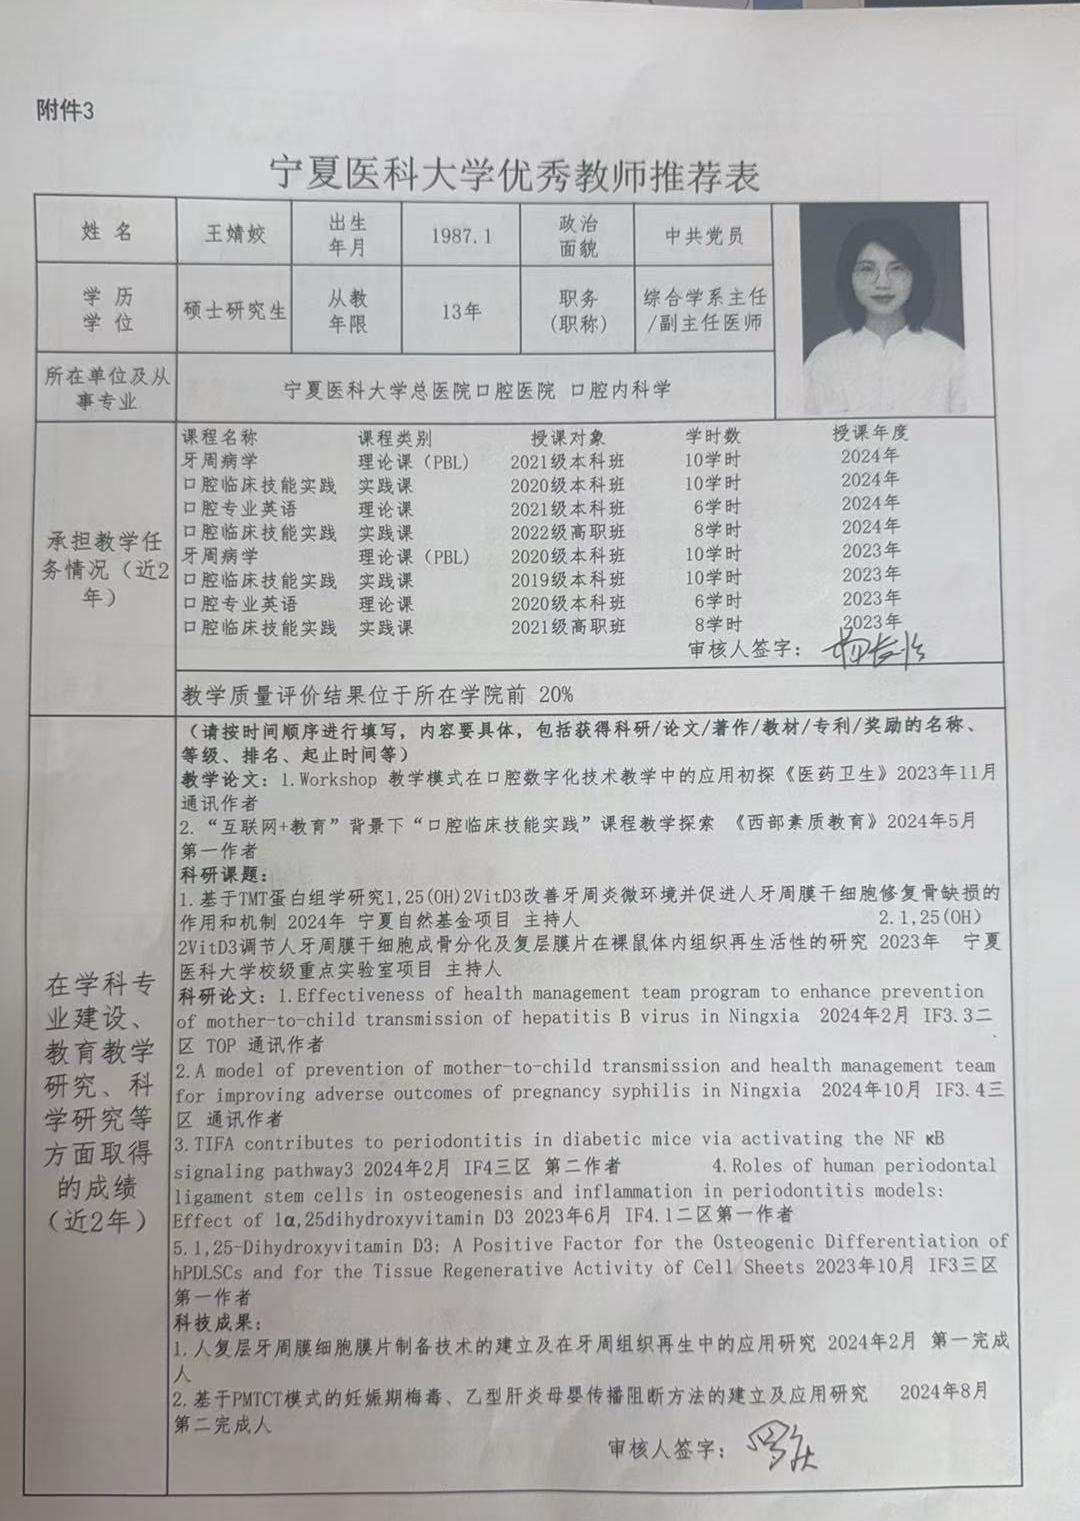 附件3
宁夏医科大学优秀教师推荐表
姓 名 王婧姣 出生年月 1987.1 政治面貌 中共党员
学 历 学 位 硕士研究生 从教年限 13年 职务(职称) 综合学系主任/副主任医师
所在单位及从事专业 宁夏医科大学总医院口腔医院 口腔内科学
承担教学任务情况（近2年）
课程名称 课程类别 授课对象 学时数 授课年度
牙周病学 理论课（PBL) 2021级本科班 10学时 2024年
口腔临床技能实践 实践课 2020级本科班 10学时 2024年
口腔专业英语 理论课 2021级本科班 6学时 2024年
口腔临床技能实践 实践课 2022级高职班 8学时 2024年
牙周病学 理论课（PBL) 2020级本科班 10学时 2023年
口腔临床技能实践 实践课 2019级本科班 10学时 2023年
口腔专业英语 理论课 2020级本科班 6学时 2023年
口腔临床技能实践 实践课 2021级高职班 8学时 2023年
审核人签字：
教学质量评价结果位于所在学院前 20%
在学科专业建设、教育教学研究、科学研究等方面取得的成绩（近2年）
（请按时间顺序进行填写，内容要具体，包括获得科研/论文/著作/教材/专利/奖励的名称、
等级、排名、起止时间等）
教学论文：1.Workshop 教学模式在口腔数字化技术教学中的应用初探《医药卫生》2023年11月
通讯作者
2.“互联网+教育”背景下“口腔临床技能实践”课程教学探索 《西部素质教育》2024年5月
第一作者
科研课题：
1.基于TMT蛋白组学研究1,25(OH)2VitD3改善牙周炎微环境并促进人牙周膜干细胞修复骨缺损的
作用和机制 2024年 宁夏自然基金项目 主持人 2.1,25(OH)
2VitD3调节人牙周膜干细胞成骨分化及复层膜片在裸鼠体内组织再生活性的研究 2023年 宁夏
医科大学校级重点实验室项目 主持人
科研论文：1.Effectiveness of health management team program to enhance prevention
of mother-to-child transmission of hepatitis B virus in Ningxia 2024年2月 IF3.3二
区 TOP 通讯作者
2.A model of prevention of mother-to-child transmission and health management team
for improving adverse outcomes of pregnancy syphilis in Ningxia 2024年10月 IF3.4三
区 通讯作者
3.TIFA contributes to periodontitis in diabetic mice via activating the NF κB
signaling pathway3 2024年2月 IF4三区 第二作者 4.Roles of human periodontal
ligament stem cells in osteogenesis and inflammation in periodontitis models:
Effect of 1α,25dihydroxyvitamin D3 2023年6月 IF4.1二区第一作者
5.1,25-Dihydroxyvitamin D3: A Positive Factor for the Osteogenic Differentiation of
hPDLSCs and for the Tissue Regenerative Activity of Cell Sheets 2023年10月 IF3三区
第一作者
科技成果：
1.人复层牙周膜细胞膜片制备技术的建立及在牙周组织再生中的应用研究 2024年2月 第一完成
人
2.基于PMTCT模式的妊娠期梅毒、乙型肝炎母婴传播阻断方法的建立及应用研究 2024年8月
第二完成人
审核人签字：